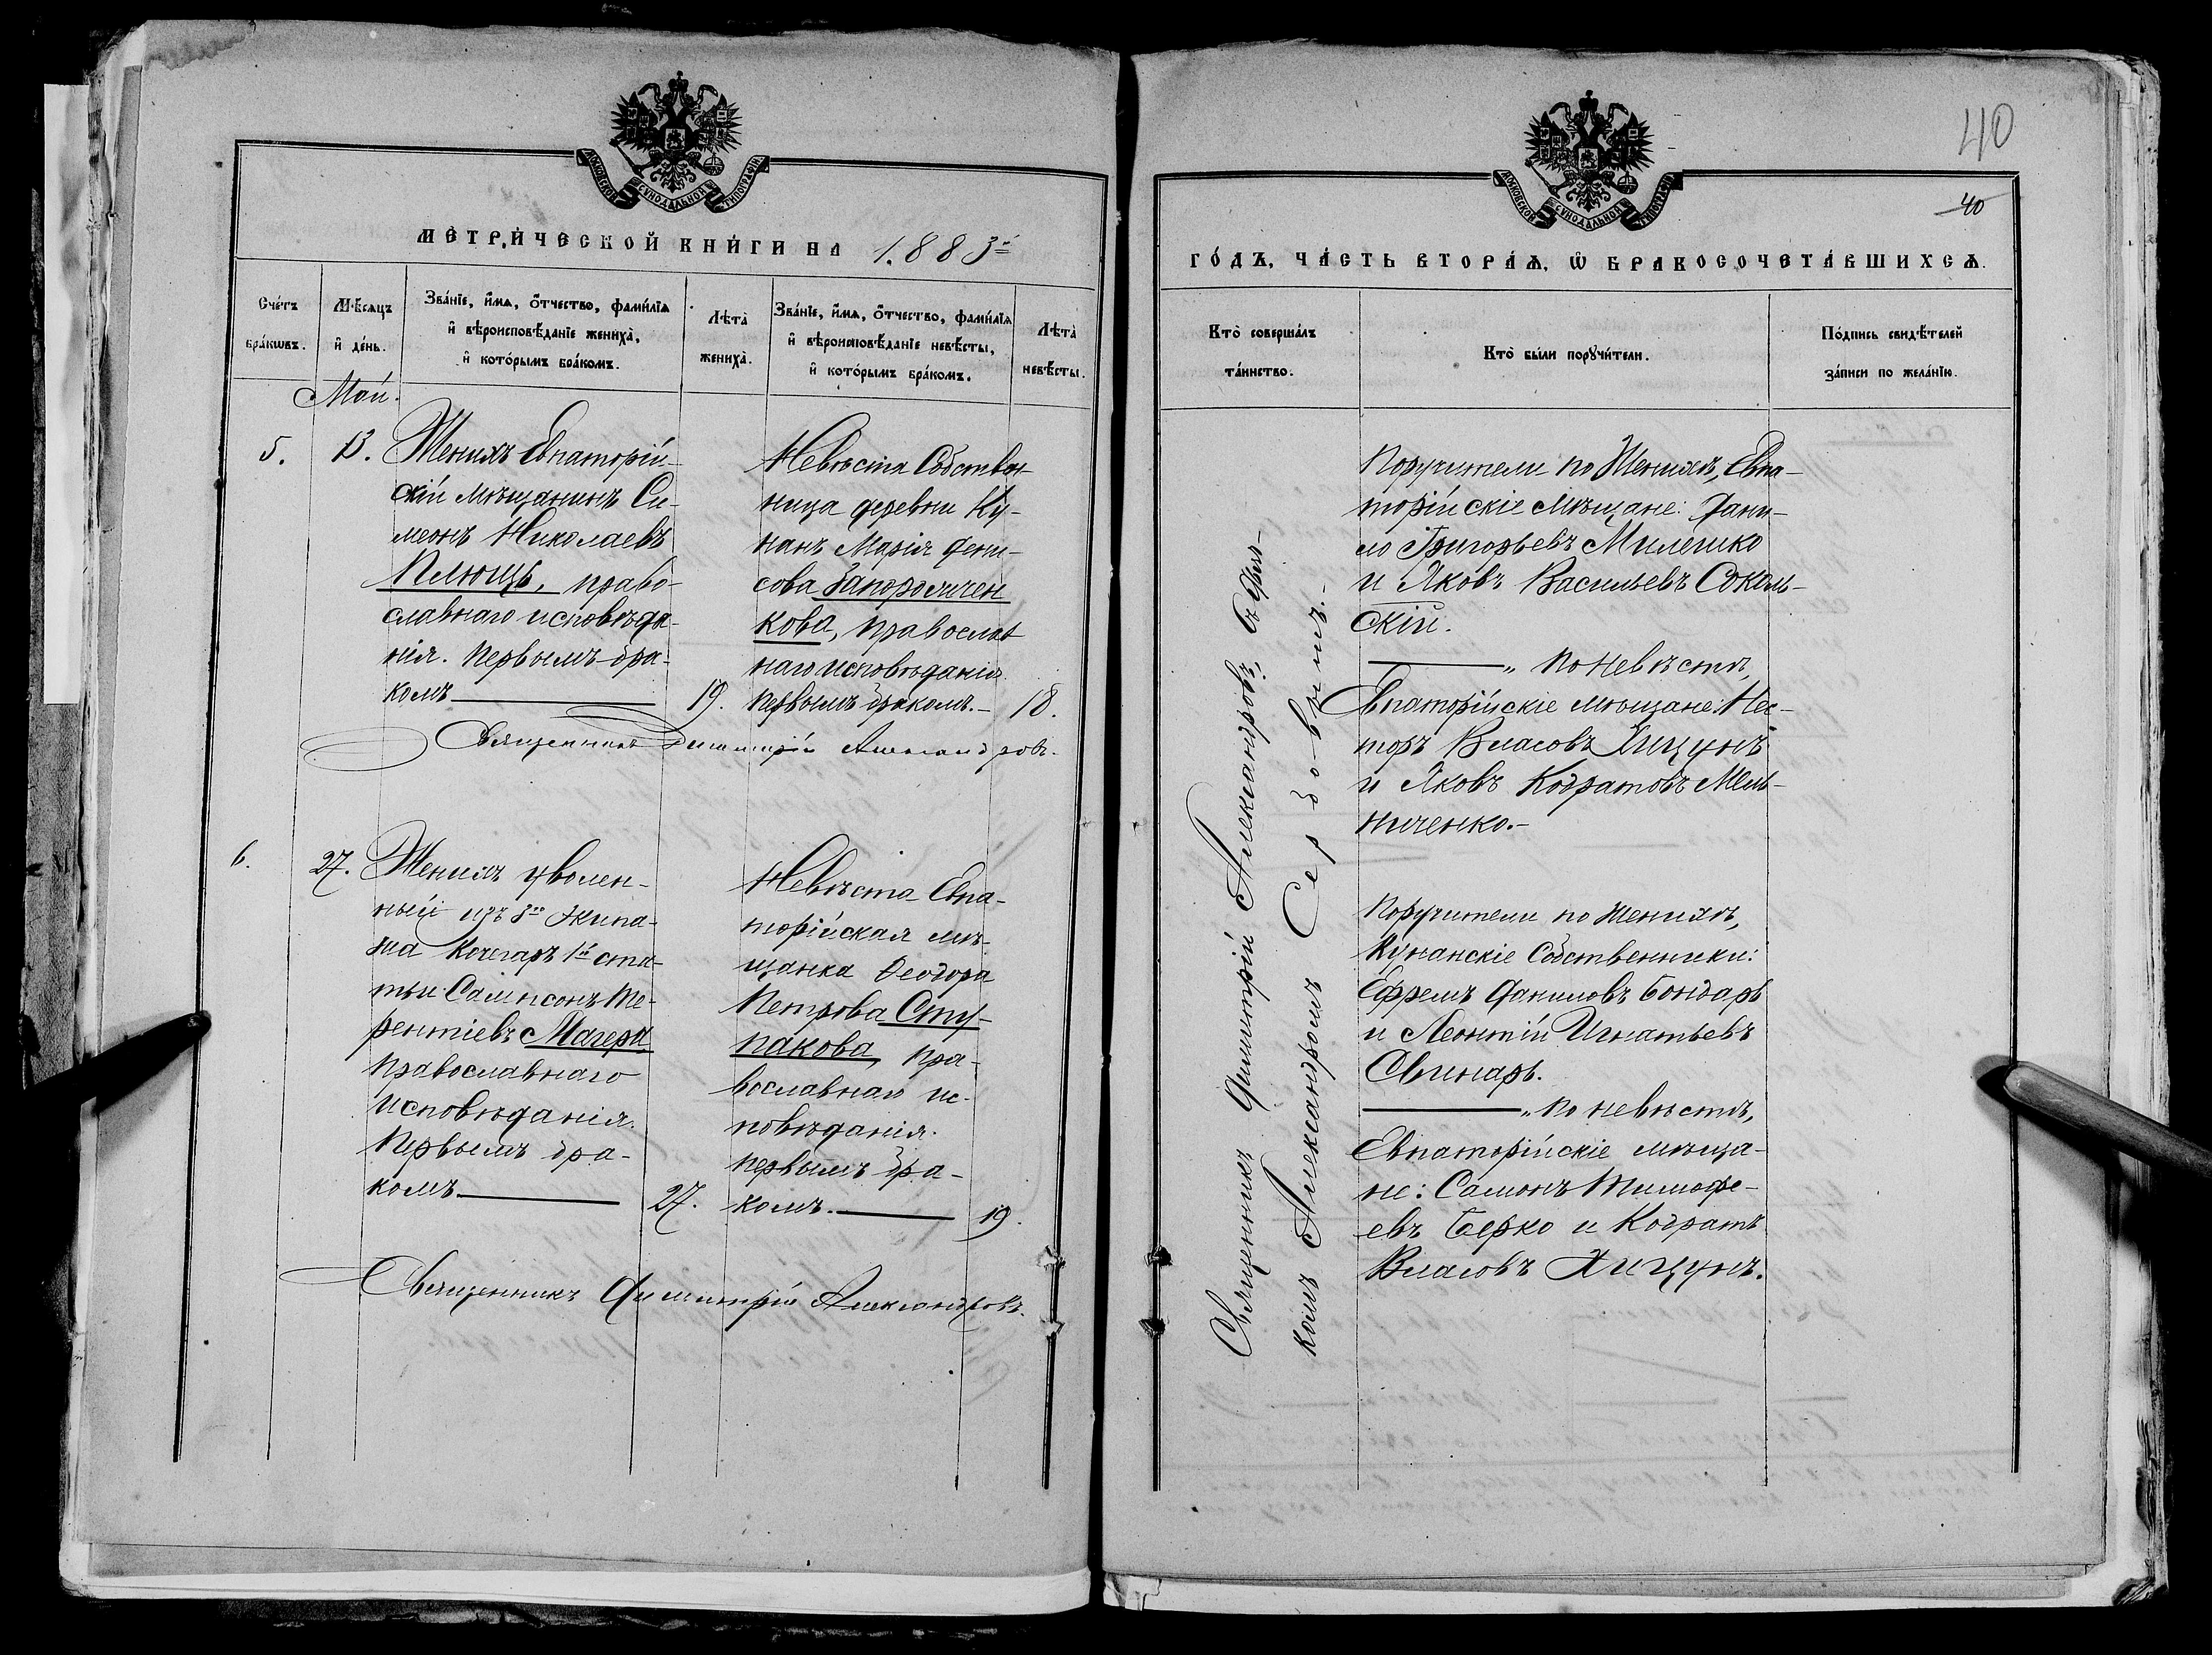 МОСКОВСКОЙ СУНОДАЛЬНОЙ ТИПОГРАФІИ
МЕТРИ́ЧЕСКОЙ КНИ́ГИ НА 1883й
Сче́тъ бра́кѡвъ.
Мѣ́сяцъ и҆ де́нь.
Зва́нїе, и҆́мѧ, ѻ҆́тчество, фами́лїѧ
и҆ вѣроисповѣ́данїе жениха̀,
и҆ кото́рымъ бра́комъ.
Лѣта̀ жениха̀.
Зва́нїе, и҆́мѧ, ѻ҆́тчество, фами́лїѧ
и҆ вѣроисповѣ́данїе невѣ́сты,
и҆ кото́рымъ бра́комъ.
Лѣта̀ невѣ́сты.
Май.
5.
13.
Женихъ Евпаторій-
скій мѣщанинъ Си-
меонъ Николаевъ
Плющъ, право-
славнаго исповѣда-
нія. Первымъ бра-
комъ
19.
Невѣста Собствен
ница деревни Ку-
нанъ Марія Дени-
сова Запорожчен
кова, православ
наго исповѣданія
первымъ бракомъ.-
18.
Священникъ Димитрій Александровъ.
6.
27.
Женихъ уволен-
ный изъ 2го Экипа-
жа Кочегаръ 1й ста-
тьи Сампсонъ Те-
рентіевъ Магера
Православнаго
Исповѣданія.
Первымъ бра-
комъ
27.
Невѣста Евпа-
торійская мѣ-
щанка Ѳеодора
Петрова Сту-
пакова, пра-
вославнаго ис-
повѣданія.
первымъ бра-
комъ.
19.
Священникъ Димитрій Александровъ.
40
МОСКОВСКОЙ СУНОДАЛЬНОЙ ТИПОГРАФІИ
40
ГО́ДЪ, ЧА́СТЬ ВТОРА́Ѧ, Ѡ҆ БРАКОСОЧЕТА́ВШИХСѦ.
Кто̀ соверша́лъ
та́инство.
Кто̀ бы́ли порꙋчи́тели.
По́дпись свидѣ́телей
за́писи по жела́нїю.
Священникъ Димитрій Александровъ, съ Дья-
комъ Александромъ Сербовымъ.-
Поручители по Женихѣ, Евпа-
торійскіе мѣщане: Дани-
ло Григорьевъ Милешко
и Яковъ Васильевъ Соколь-
скій.
" По Невѣстѣ,
Евпаторійскіе мѣщане: Нес-
торъ Власовъ Хицунъ
и Яковъ Кодратовъ Мель-
ниченко.-
Поручители по Женихѣ,
Кунанскіе Собственники:
Ефремъ Даниловъ Бондарь
и Леонтій Игнатьевъ
Свинарь.
" По невѣстѣ,
Евпаторійскіе мѣща-
не: Самонъ Тимофе-
евъ Берко и Кодратъ
Власовъ Хицунъ.